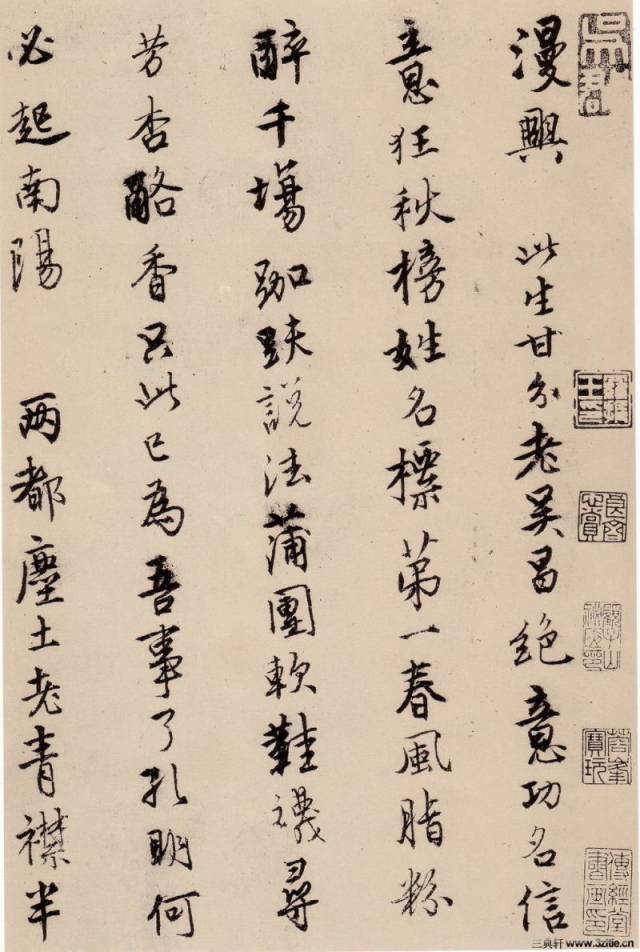 漫興 此生甘分老吳昌絕意功名信
意狂秋榜姓名標苐一春風脂粉
醉千塲跏趺說法蒲團軟鞋襪尋
芳杏酪香只此已為吾事了孔明何
必起南陽 兩都塵土老青襟半
傳經堂書画印
三典轩 www.3zitie.cn